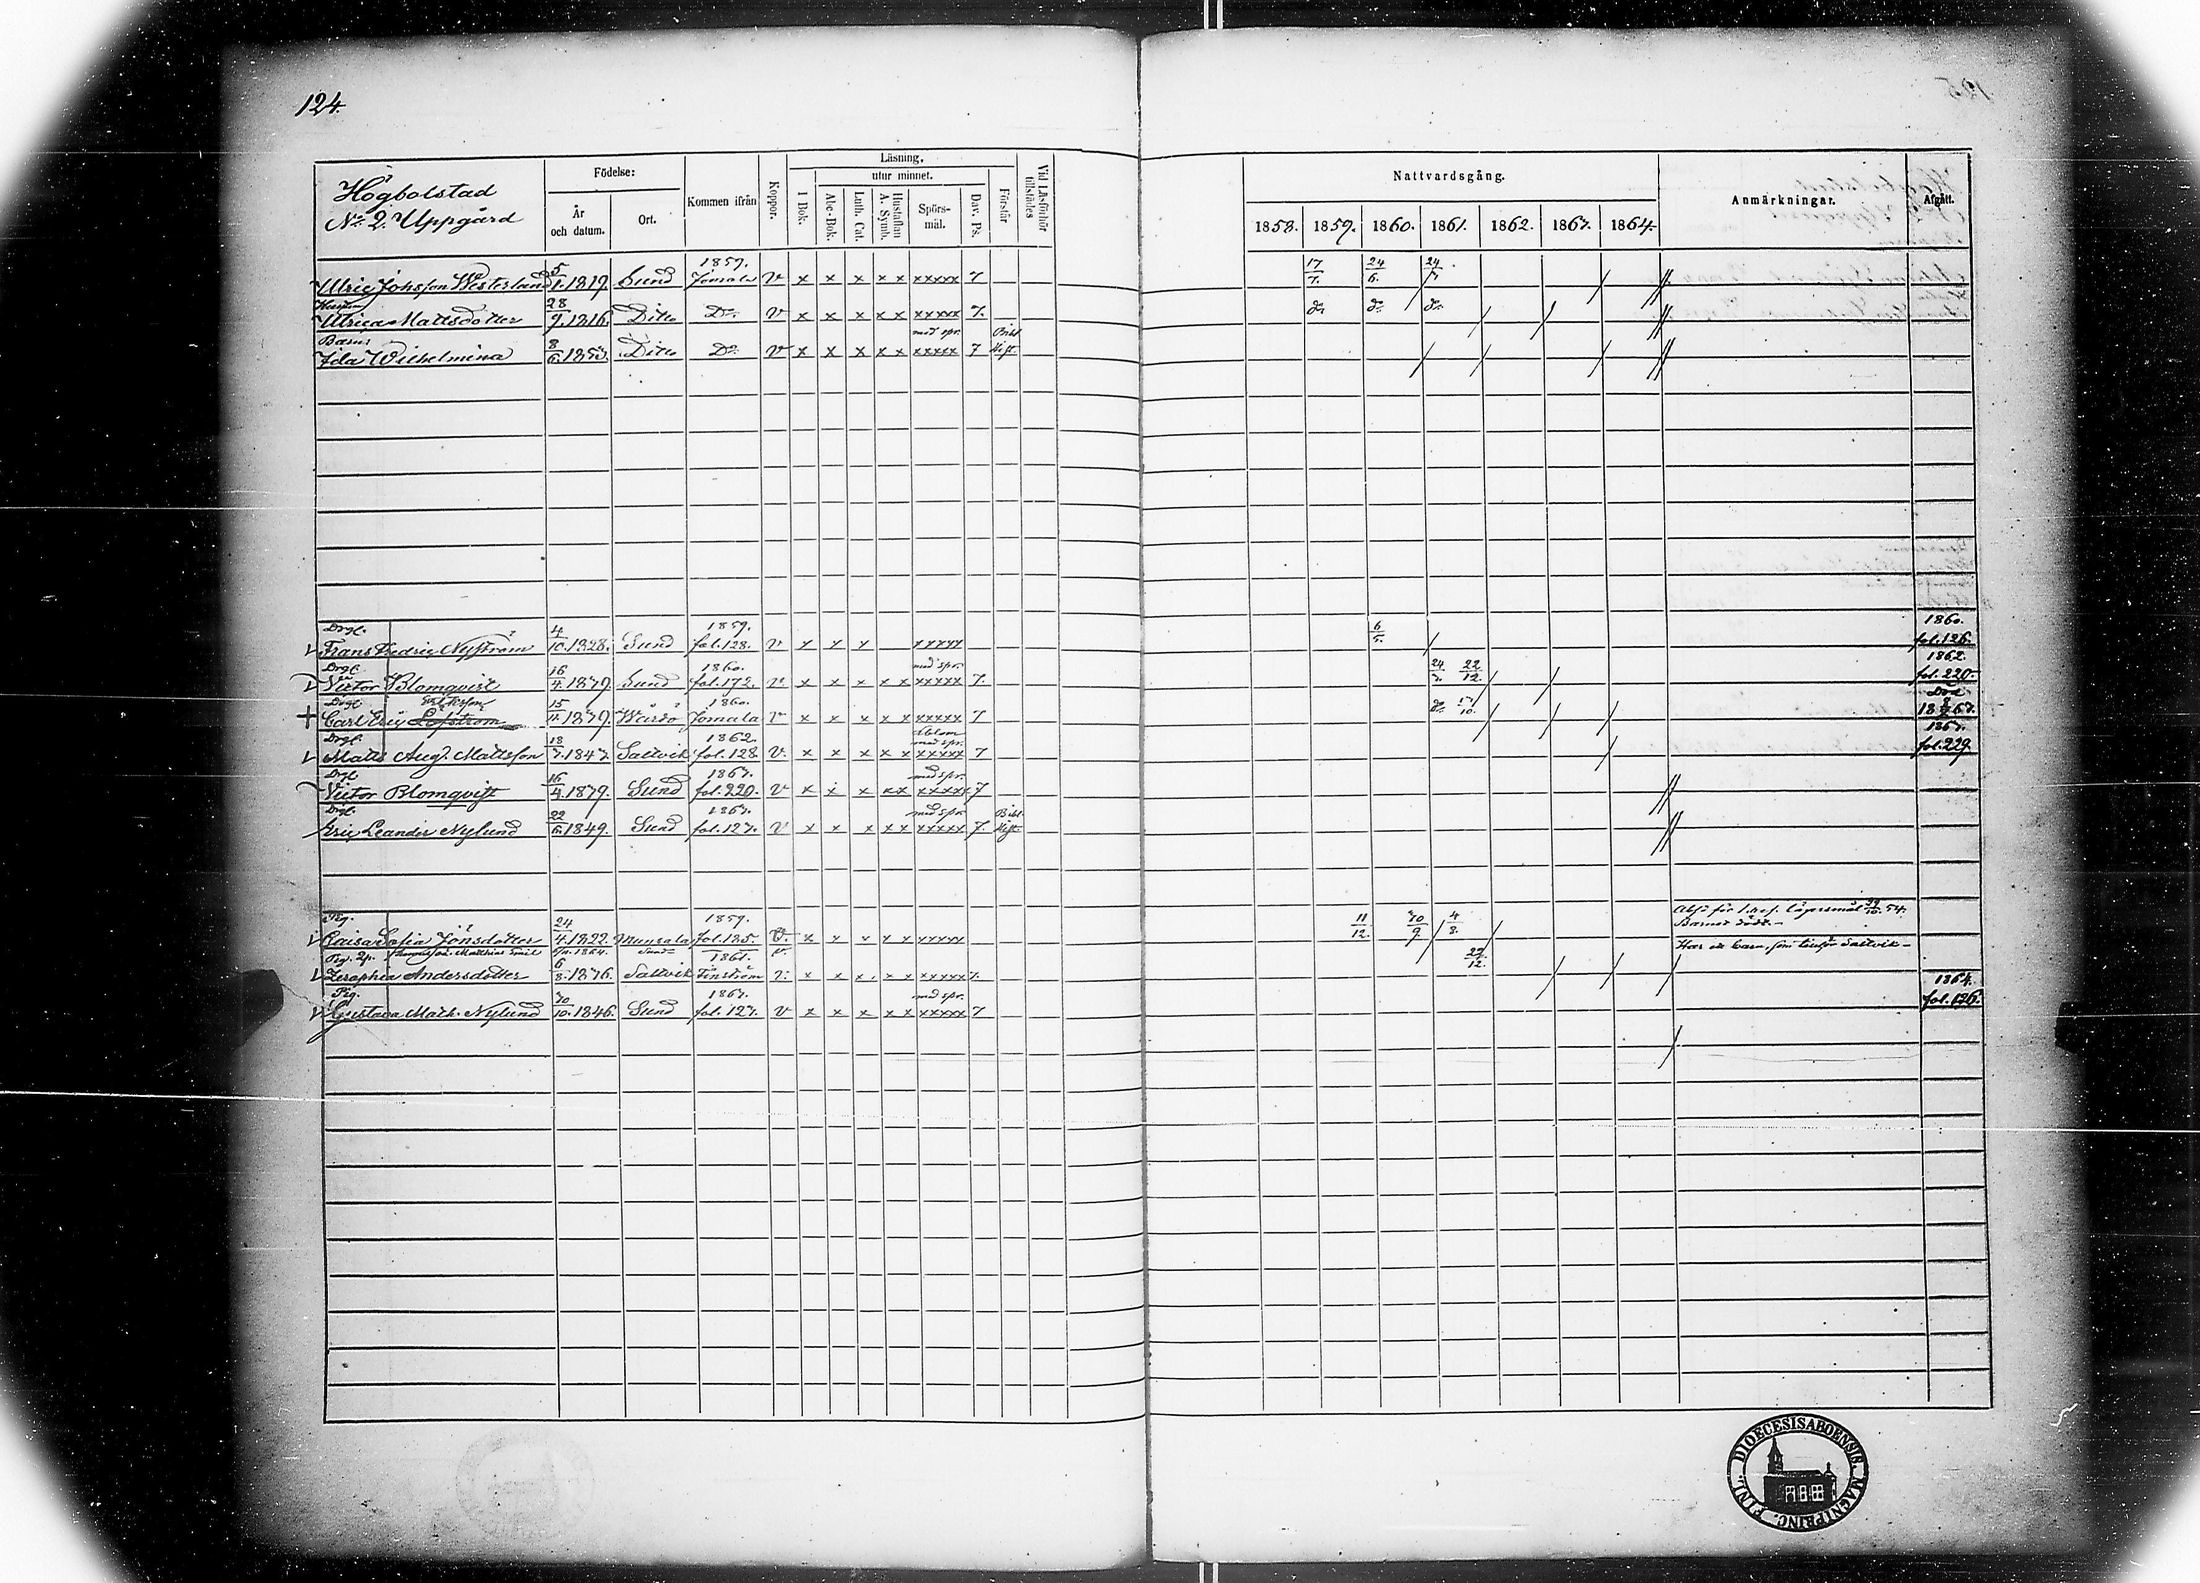 124.
Högbolstad
No 2. Uppgård
Födelse:
År och datum.
Ort.
Kommen ifrån
Koppor.
Läsning,
utur minnet.
I Bok.
Abc-Bok.
Luth. Cat.
Hustaflan A. Symb.
Spörsmål.
Dav. Ps.
Förstår
Vid Läsförhör tillstädes
Nattvardsgång.
1858. 1859. 1860. 1861. 1862. 1863. 1864.
Anmärkningar.
Afgått.
1859.
Ulric Johsson Westerlund 5/1. 1819. Sund Jomala v x x x x x xxxxx 7 17/7. 24/6. 24/7
Hustru
Ulrica Mattsdotter 28/9. 1816. Ditto Do. v x x x x x xxxxx 7. do do do
Barn: med spr. Bibl.
Ida Wilhelmina 8/6. 1853. Ditto Do v x x x x x xxxxx 7 Hist.
Drgl. 1859. 1860.
Frans Fredric Nyström 4/10. 1828. Sund fol. 128. v x x x xxxxx 6/5. fol. 126.
Drgl. 1860. med spr. 1862.
Victor Blomqvist 16/4. 1839. Sund fol. 172. v x x x x x xxxxx 7. 24/7. 22/12. fol. 220.
Drgl. 1860. Död
Carl Eric Löfström 15/11. 1839. Wårdö Jomala v x x x x x xxxxx 7 do
Drgl. 1862. med spr. 1863.
Matts Aug. Mattsson 18/7. 1843. Saltvik fol. 128. v. x x x x x xxxxx 7 fol. 229.
Drgl. 1863. med spr.
Victor Blomqvist 16/4. 1839. Sund fol. 220. v x x x x x xxxxx 7
Drgl. 1863. med spr. Bibl.
Eric Leander Nylund 22/6. 1849. Sund fol. 127. v x x x x x xxxxx 7. Hist.
Pig. 1859.
Caisa Sofia Jönsdotter 24/4. 1822. Munsala fol. 135. v. x x x x x xxxxx 11/12. 30/9. 4/8.
Barnet död.
Pig. 1861.
Zeraphia Andersdotter 6/8. 1836. Saltvik Finström v. x x x x x xxxxx 7. 22/12.
Har ett barn, som tillhör Saltvik
Pig. 1863. med spr. 1864.
Gustava Math. Nylund 30/10. 1846. Sund fol. 127. v x x x x x xxxxx 7 fol. 126.
FINL. DIOECESIS ABOENSIS. MAGNI PRINC.